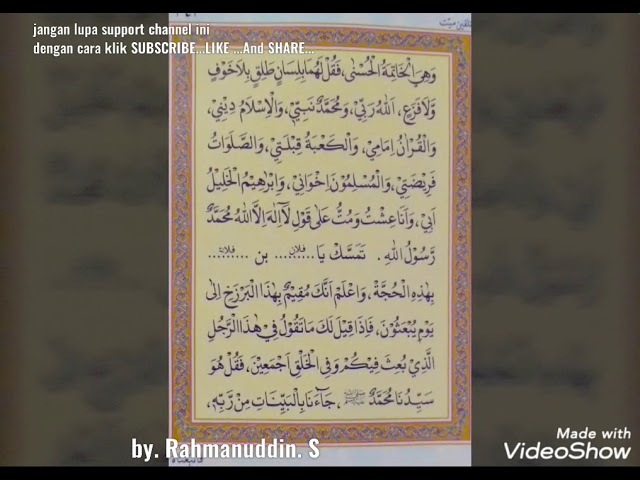 jangan lupa support channel ini
dengan cara klik SUBSCRIBE...LIKE ...And SHARE...
تلقين ميت
وَهِيَ الْخَاتِمَةُ الْحُسْنٰى، فَقُلْ لَهُمَا بِلِسَانٍ طَلِقٍ بِلَاخَوْفٍ
وَلَا فَزَعٍ، اَللهُ رَبِّيْ، وَمُحَمَّدٌ نَبِيِّيْ، وَالْاِسْلَامُ دِيْنِيْ،
وَالْقُرْاٰنُ اِمَامِيْ، وَالْكَعْبَةُ قِبْلَتِيْ، وَالصَّلَوَاتُ
فَرِيْضَتِيْ، وَالْمُسْلِمُوْنَ اِخْوَانِيْ، وَاِبْرَاهِيْمُ الْخَلِيْلُ
اَبِيْ، وَاَنَا عِشْتُ وَمُتُّ عَلٰى قَوْلِ لَآ اِلٰهَ اِلَّا اللهُ مُحَمَّدٌ
رَسُوْلُ اللهِ. تَمَسَّكْ يَا ...فلان... بن ...فلانة...
بِهٰذِهِ الْحُجَّةِ، وَاعْلَمْ اَنَّكَ مُقِيْمٌ بِهٰذَا الْبَرْزَخِ اِلٰى
يَوْمِ يُبْعَثُوْنَ، فَاِذَا قِيْلَ لَكَ مَاتَقُوْلُ فِيْ هٰذَا الرَّجُلِ
الَّذِيْ بُعِثَ فِيْكُمْ وَفِى الْخَلْقِ اَجْمَعِيْنَ، فَقُلْ هُوَ
سَيِّدُنَا مُحَمَّدٌ ﷺ، جَآءَنَا بِالْبَيِّنَاتِ مِنْ رَبِّهٖ،
by. Rahmanuddin. S
Made with
VideoShow